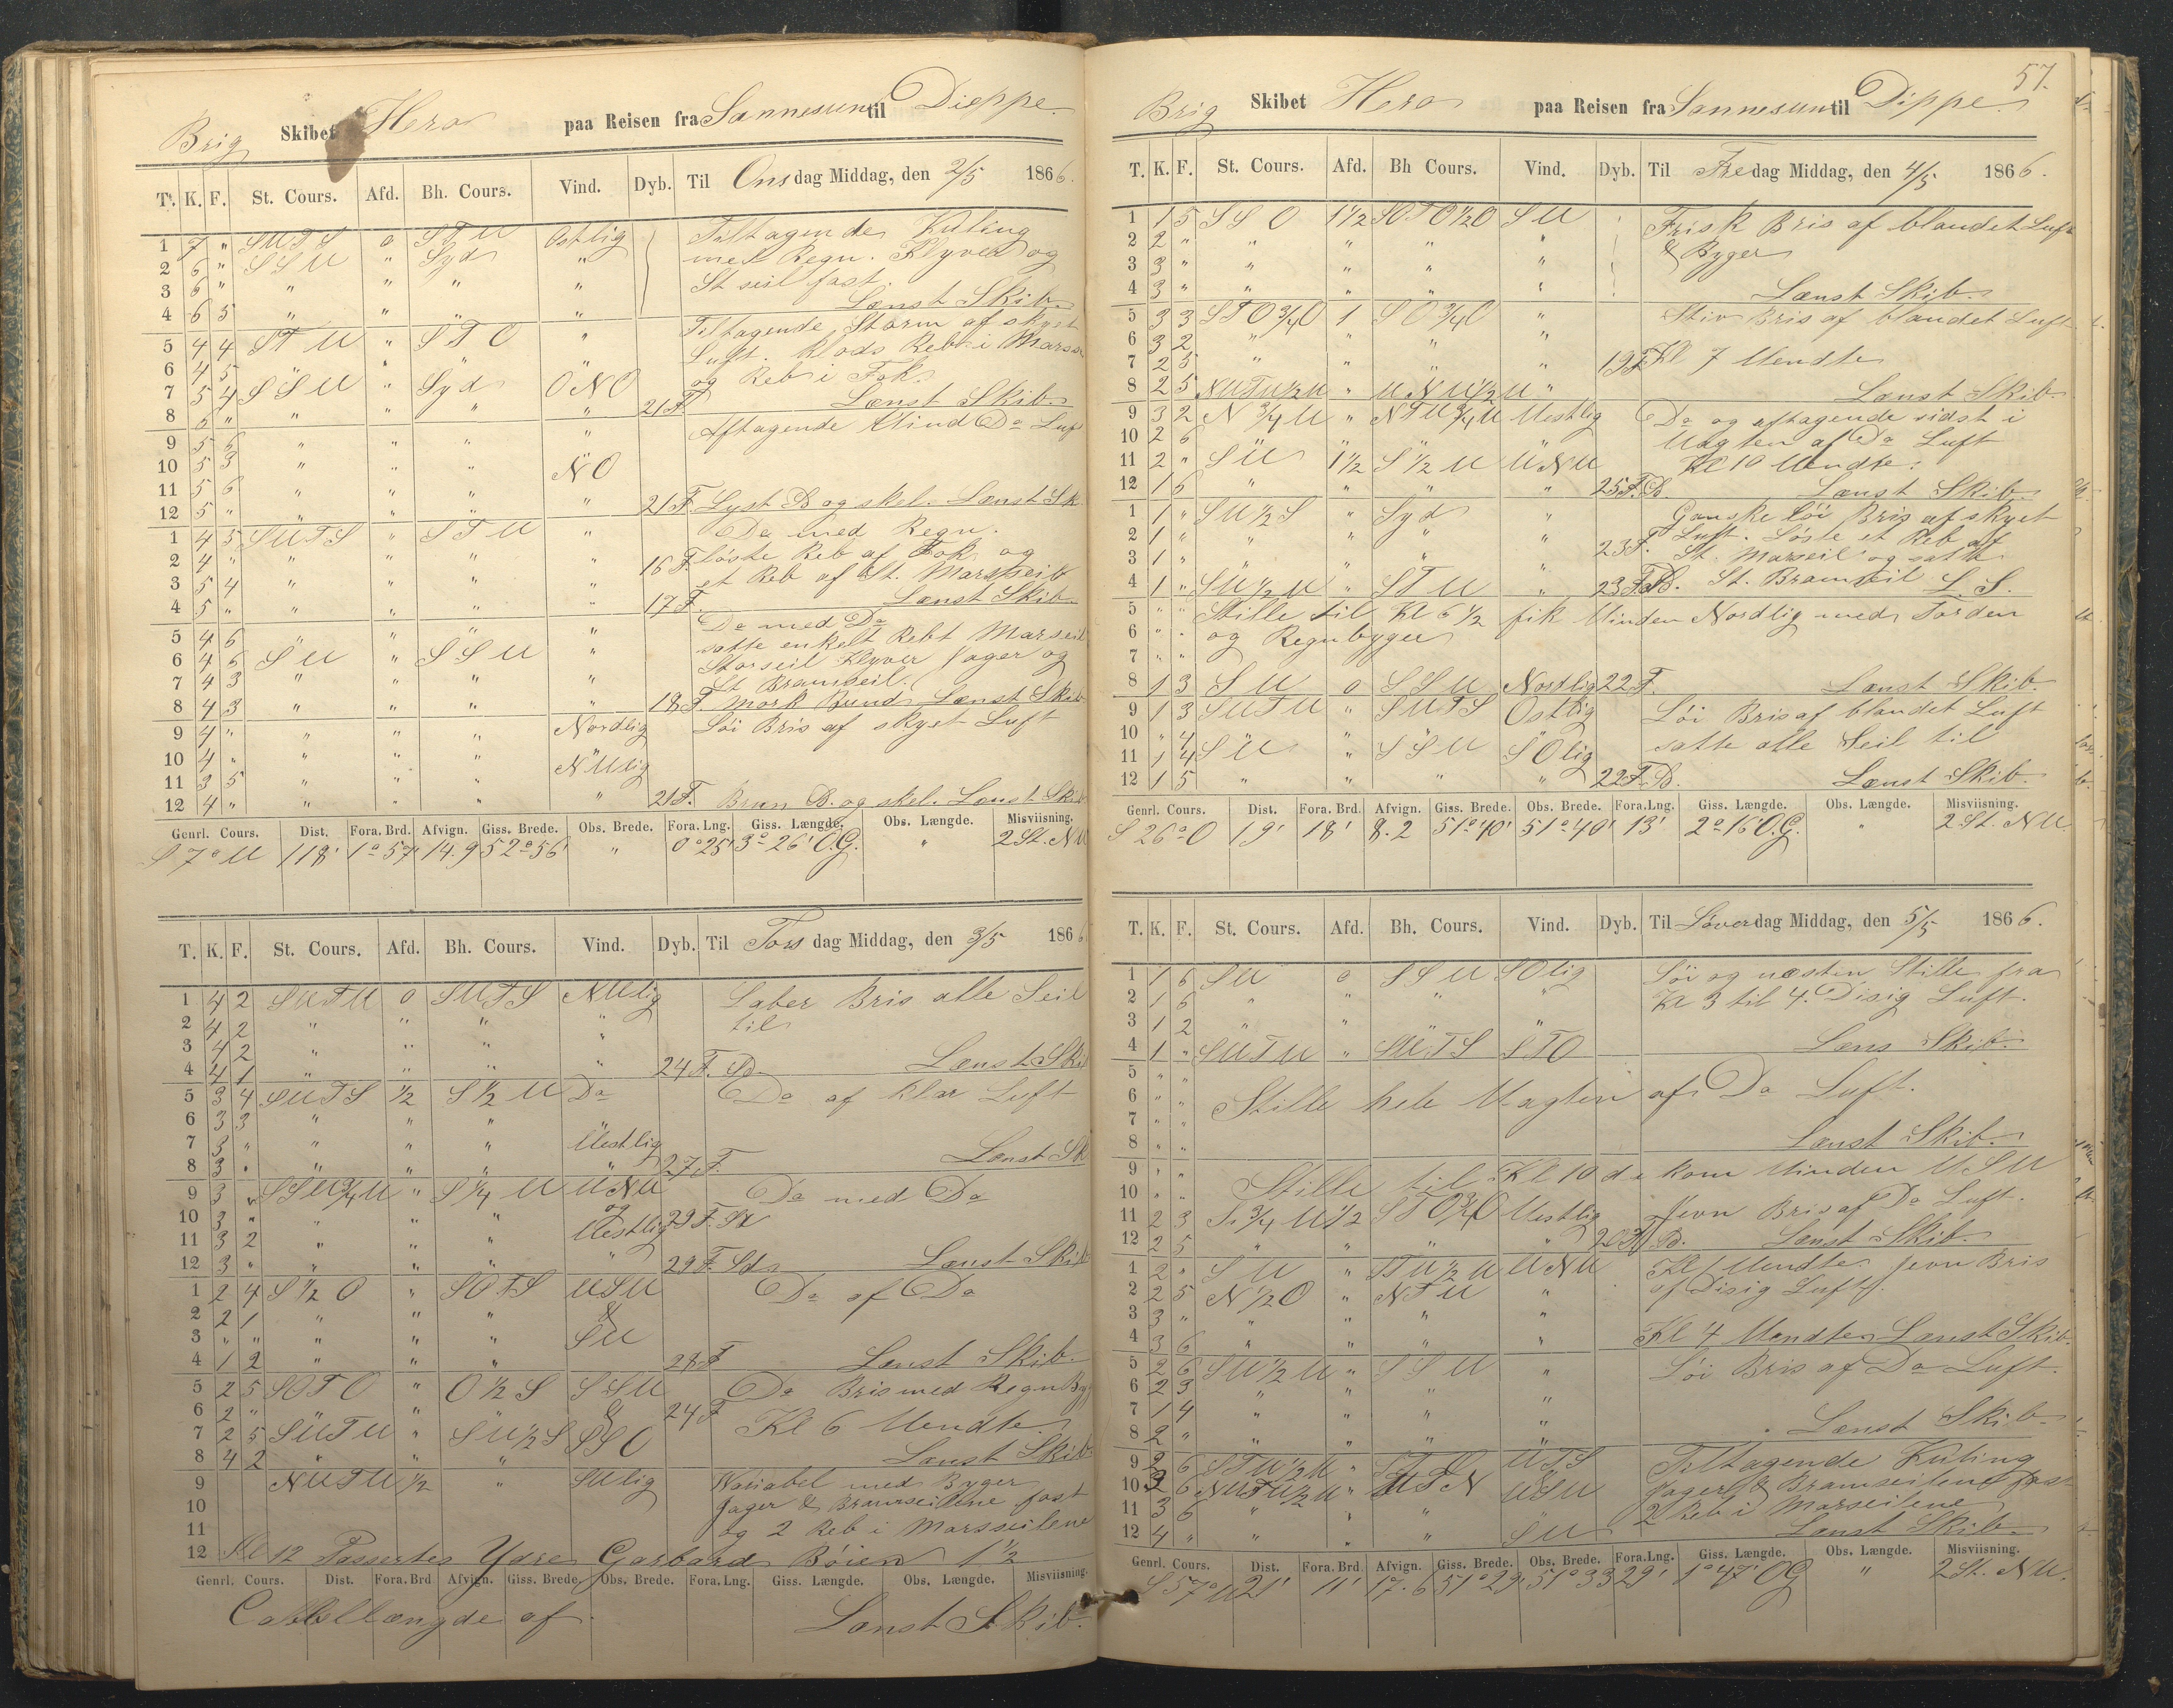 Brig Skibet Hero paa Reisen fra Sannesun til Dieppe
T. K. F. St. Cours. Afd. Bh. Cours. Vind. Dyb. Til Onsdag Middag, den 2/5 1866.
1 7 " SUTS 0 STU Ostlig Tiltagende Kuling
2 6 " SSU " Syd " med Regn. Klyver og
3 6 " " " " " St seil fast.
4 6 5 " " " " Lænst Skib.
5 4 4 STU " STO " Tiltagende Storm af skyet
6 4 5 " " " " Luft. Klods Reb i Marss
7 5 4 SSU " Syd ONO og Reb i Fok.
8 6 " " " " " 21 F Lænst Skib.
9 5 6 " " " " Aftagende Vind Do Luf
10 5 3 " " " NO
11 5 6 " " " "
12 5 " " " " " 21 F. Lyst B og skel. Lænst Sk
1 4 5 SUTS " STU " Do med Regn.
2 4 " " " " " 16 F løste Reb af Fok og
3 5 4 " " " " et Reb af St. Marsseil
4 5 " " " " " 17 F. Lænst Skib
5 4 6 " " " " Do med Do
6 4 6 SU " SSU " satte enkelt Rebt Marseil
7 4 3 " " " " Storseil Klyver Jager og
St Bramseil.
8 4 3 " " " " 18 F. Mork Bund Lænst Skib
9 4 " " " " Nordlig Löi Bris af skyet Luft
10 4 " " " " NUlig
11 3 5 " " " "
12 4 " " " " " 21 F. Brun B. og skel. Lænst Skib
Genrl. Cours. Dist. Fora. Brd. Afvign. Giss. Brede. Obs. Brede. Fora. Lng. Giss. Længde. Obs. Længde. Misviisning.
S 7° U 118' 1° 57' 14.9 52° 56' " 0° 25' 3° 26' O.G. " 2 St. NU
T. K. F. St. Cours. Afd. Bh. Cours. Vind. Dyb. Til Torsdag Middag, den 3/5 1866
1 4 2 SUTU 0 SUTS NUlig Laber Bris alle Seil
2 4 2 " " " " til
3 4 2 " " " "
4 4 1 " " " " 24 F. Sd Lænst Skib
5 3 4 SUTS 1/2 S 1/2 U Do Do af klar Luft
6 3 3 " " "
7 3 " " " " Uestlig
8 3 " " " " " 27 F. Lænst Sk
9 3 " SSU 3/4 U " S 1/4 U UNU Do med Do
10 3 " " " " og 29 F. Sd
11 3 2 " " " Uestlig
12 3 " " " " " 29 F. Sd Lænst Skib
1 2 4 S 1/2 O " SOTS USU Do af Do
2 2 1 " " " &
3 " " " " " SU
4 1 2 " " " 28 F Lænst Skib.
5 2 5 SOTO " O 1/2 S SSU Do Bris med Regn By
6 2 " " " " & 24 F Kl 6 Uendte
7 2 5 SUTU " SU 1/2 S SSO
8 4 2 " " " Lænst Skib
9 NUTU 1/2 " SUlig Variabel med Byger
10 Jager & Bramseilene fast
11 og 2 Reb i Marsseilene
12 Kl 12 Passertes Ydre Garbard Bøien 1 1/2
Genrl. Cours. Dist. Fora. Brd Afvign. Giss. Brede. Obs. Brede. Fora. Lng. Giss. Længde. Obs. Længde. Misviisning.
Cabellængde af. Lænst Skib.
57.
Brig Skibet Hero paa Reisen fra Sannesun til Dippe
T. K. F. St. Cours. Afd. Bh Cours. Vind. Dyb. Til Fredag Middag, den 4/5 1866.
1 1 5 SSO 1 1/2 SOTO 1/2 O SU Frisk Bris af blandet Luft
2 2 " " " " " & Byger
3 3 " " " " "
4 3 " " " " " Lænst Skib.
5 3 3 STO 3/4 O 1 SO 3/4 O " Stiv Bris af blandet Luft
6 3 2 " " " "
7 2 5 " " " " 19 F. Kl 7 Uendte
8 2 5 NUTU 1/2 U " UNU 1/2 U " Lænst Skib.
9 3 2 N 3/4 U " NTU 3/4 U Uestlig Do og aftagende sidst i
10 2 6 " " " " Uagten af Do Luft
11 2 " SU 1 1/2 S 1/2 U UNU Kl 10 Uendte.
12 1 6 " " " " 25 F. B. Lænst Skib.
1 1 " SU 1/2 S " Syd " Ganske löi Bris af skyet
2 1 " " " " " Luft. Løste et Reb af
3 1 " " " " " 23 F. St. Marseil og satte
4 1 " SU 1/2 U " STU " 23 F. B. St. Bramseil L. S.
5 " " Stille til Kl 6 1/2 fik Uinden Nordlig med Torden
6 " " og Regnbyger
7 " "
8 1 3 SU 0 SSU Nordlig 22 F. Lænst Skib.
9 1 3 SUTU " SUTS Ostlig Löi Bris af blandet Luft
10 " 4 " " " " satte alle Seil til
11 1 4 SU " SSU SOlig
12 1 5 " " " " 22 F. B. Lænst Skib.
Genrl. Cours. Dist. Fora. Brd. Afvign. Giss. Brede. Obs. Brede. Fora. Lng. Giss. Længde. Obs. Længde. Misviisning.
S 26° O 19' 18' 8.2 51° 40' 51° 40' 13' 2° 16' O.G. " 2 St. NU.
T. K. F. St. Cours. Afd. Bh. Cours. Vind. Dyb. Til Løverdag Middag, den 5/5 1866.
1 1 6 SU 0 SSU SOlig Löi og næsten Stille fra
2 1 6 " " " " Kl 3 til 4. Disig Luft.
3 1 2 " " " "
4 1 " SUTU " SUTS STO Læns Skib.
5 " "
6 " " Stille hele Uagten af Do Luft.
7 " "
8 " " Lænst Skib.
9 " " Stille til Kl 10 da kom Uinden USU
10 " "
11 2 3 S 3/4 U 1/2 STO 3/4 O Uestlig Jevn Bris af Do Luft.
12 2 5 " " " " B. Lænst Skib.
1 2 " SU " STU 1/2 U UNU Kl 1 Uendte. Jevn Bris
2 2 5 N 1/2 O " NTU " af Disig Luft.
3 3 " " " " "
4 3 6 " " " " Kl 4 Uendte Lænst Skib.
5 2 6 SU 1/2 U " SSU " Löi Bris af Do Luft.
6 2 3 " " " "
7 1 4 " " " "
8 2 " " " " " Lænst Skib
9 2 6 STU 1/2 U " UTS Tiltagende Kuling
10 3 6 NUTU 1/2 U " UTN USU Jager & Bramseilene fast
11 3 6 " " " 2 Reb i Marseilene
12 4 " " " " SU Lænst Skib.
Genrl. Cours. Dist. Fora. Brd. Afvign. Giss. Brede. Obs. Brede. Fora. Lng. Giss. Længde. Obs. Længde. Misviisning.
S 57° U 21' 11' 17.6 51° 29' 51° 33 29' 1° 47' OG " 2 St. NU.